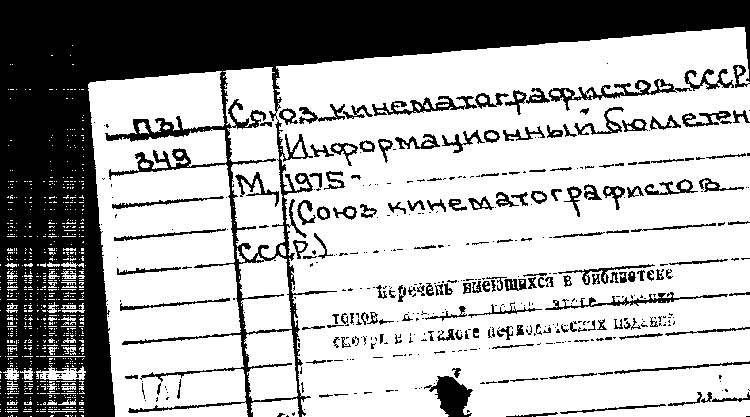 П31 Союз кинематографистов СССР.
349 Информационный бюллетен
М., 1975-
(Союз кинематографистов
СССР.)
Перечень имеющихся в библиотеке
томов, этого издания
смотри в каталоге периодических изданий